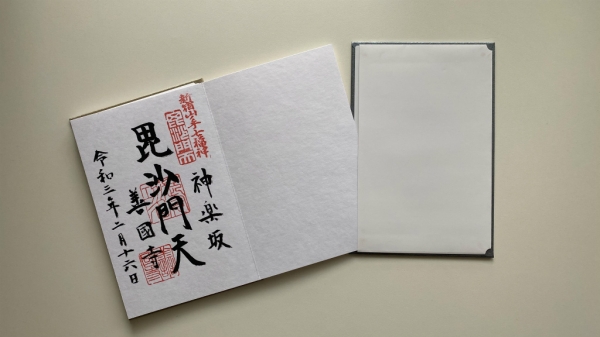 新宿山ノ手七福神
神楽坂
毘沙門天
善國寺
令和三年二月十六日